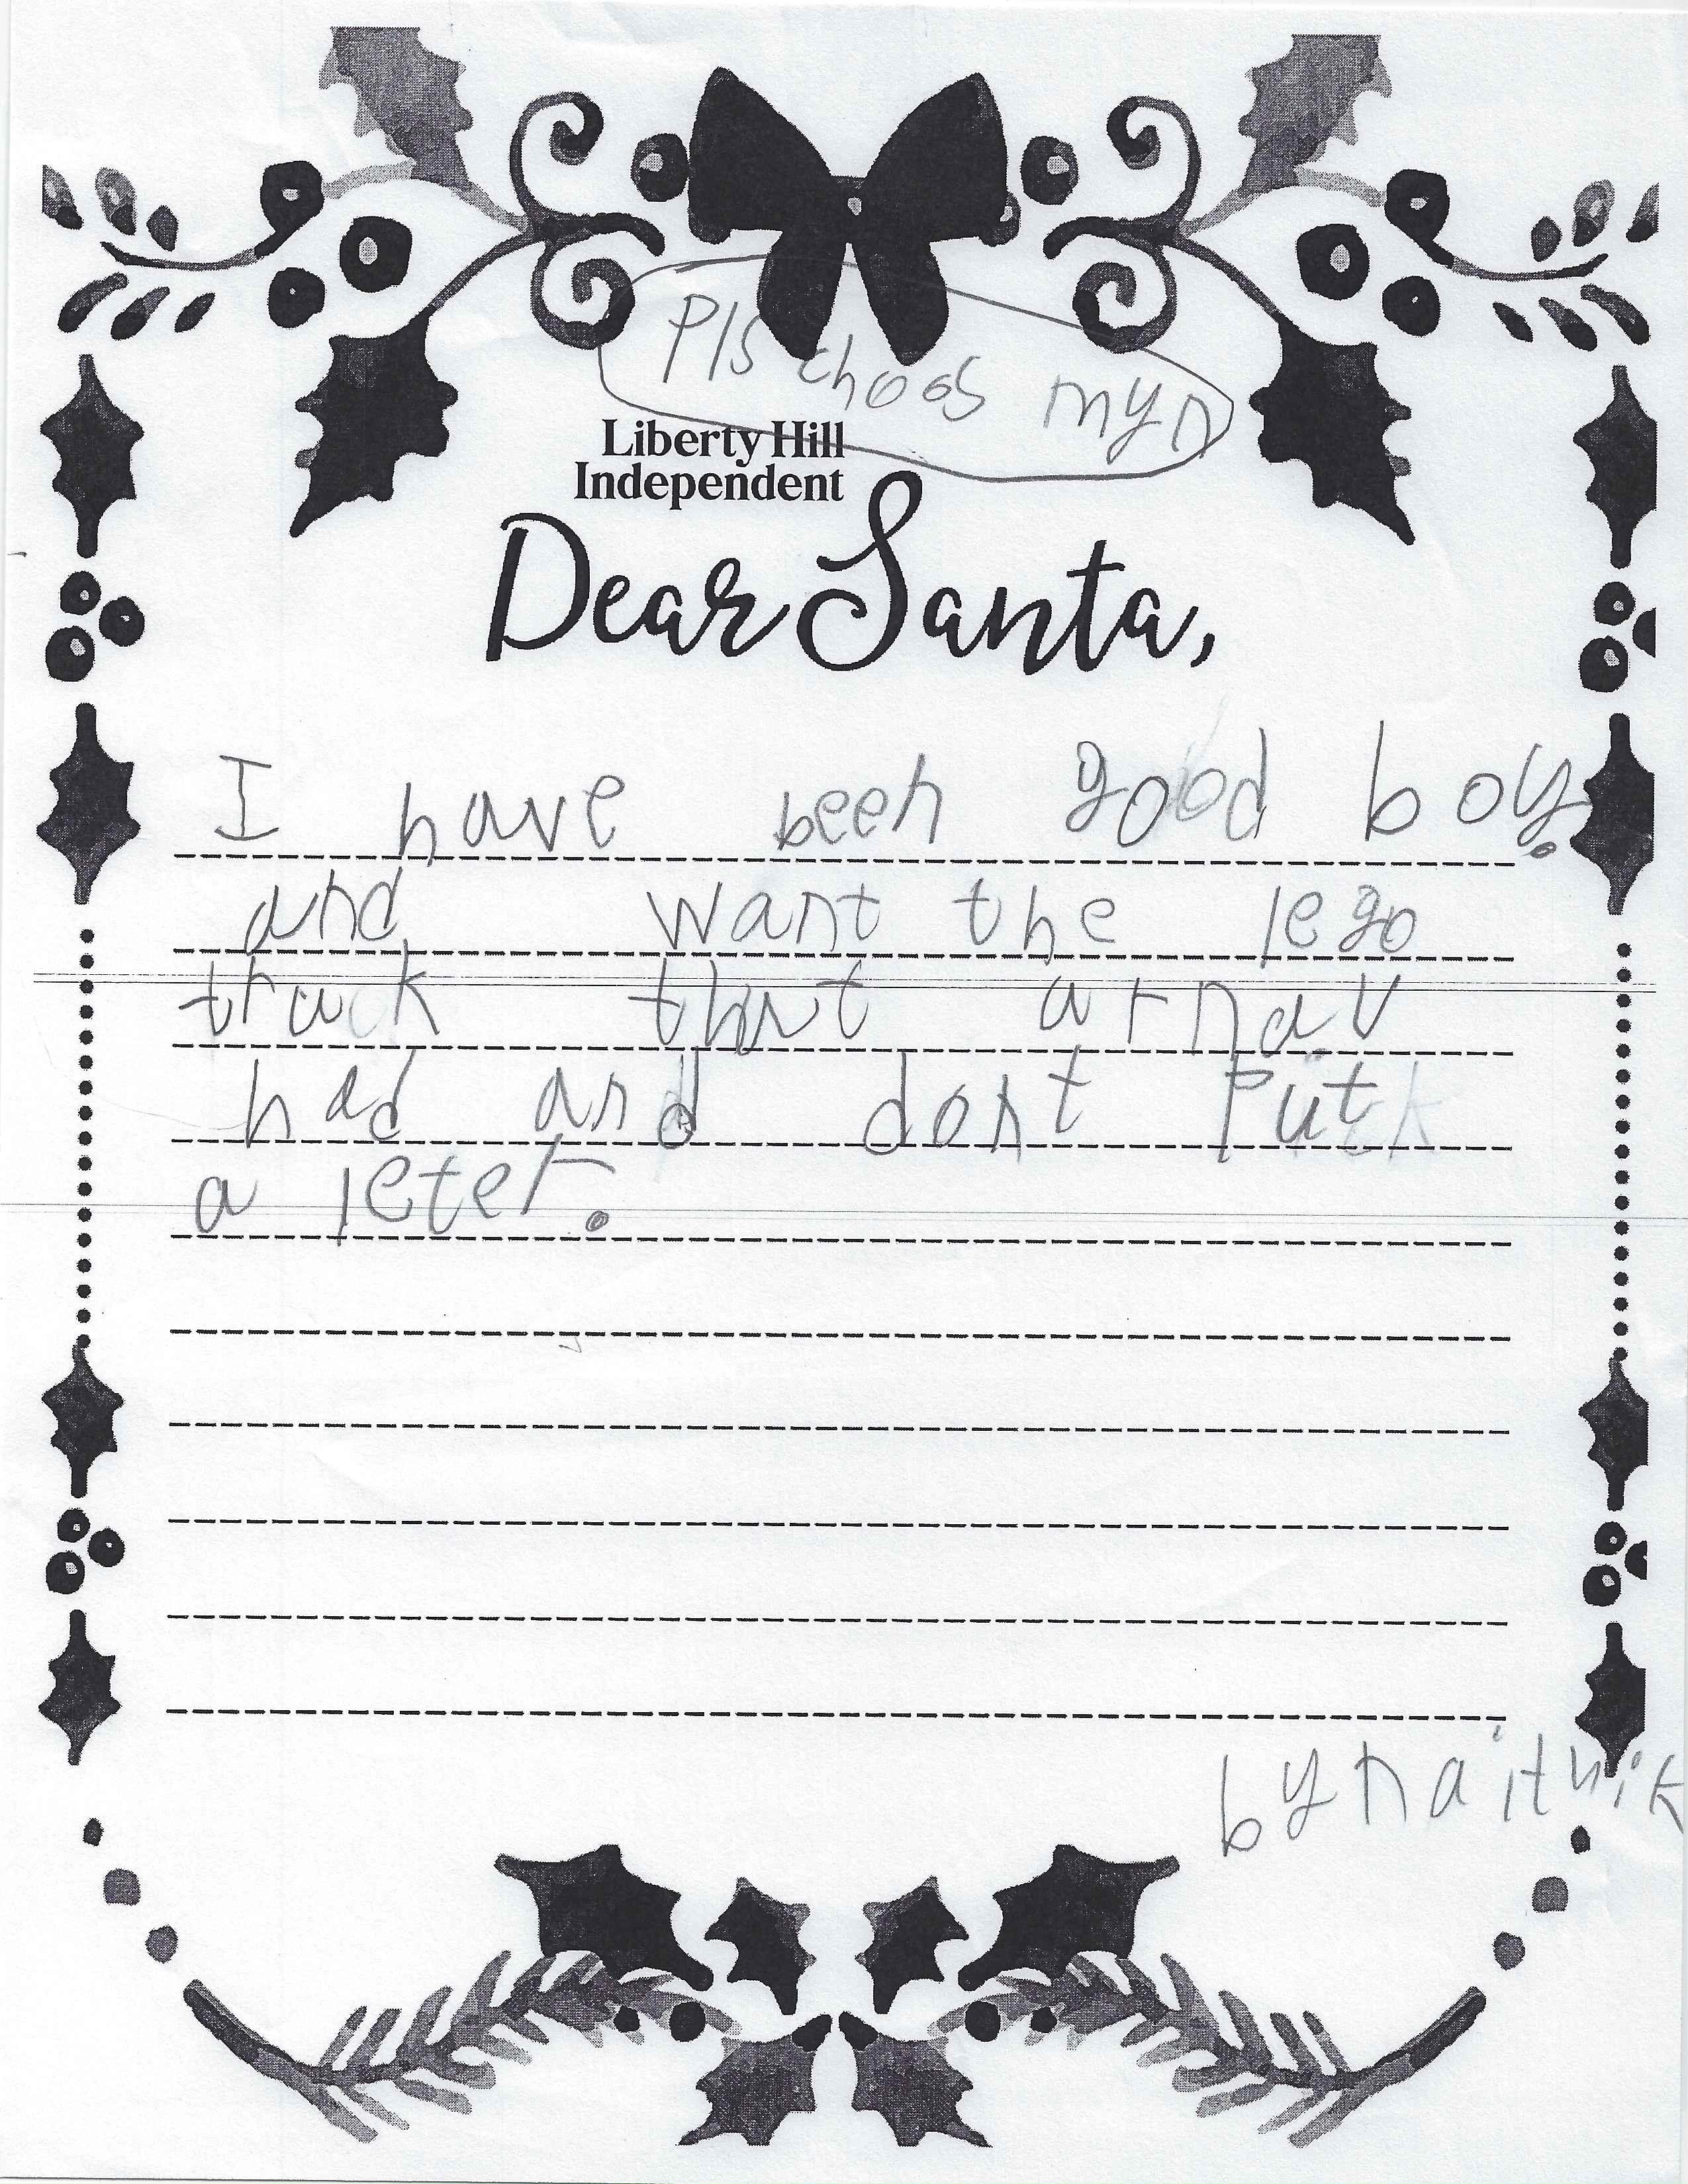 Pls choos myn
Liberty Hill
Independent
Dear Santa,
I have been good boy.
and want the lego
truck that arnav
had and dont Put
a leter.
by naithik